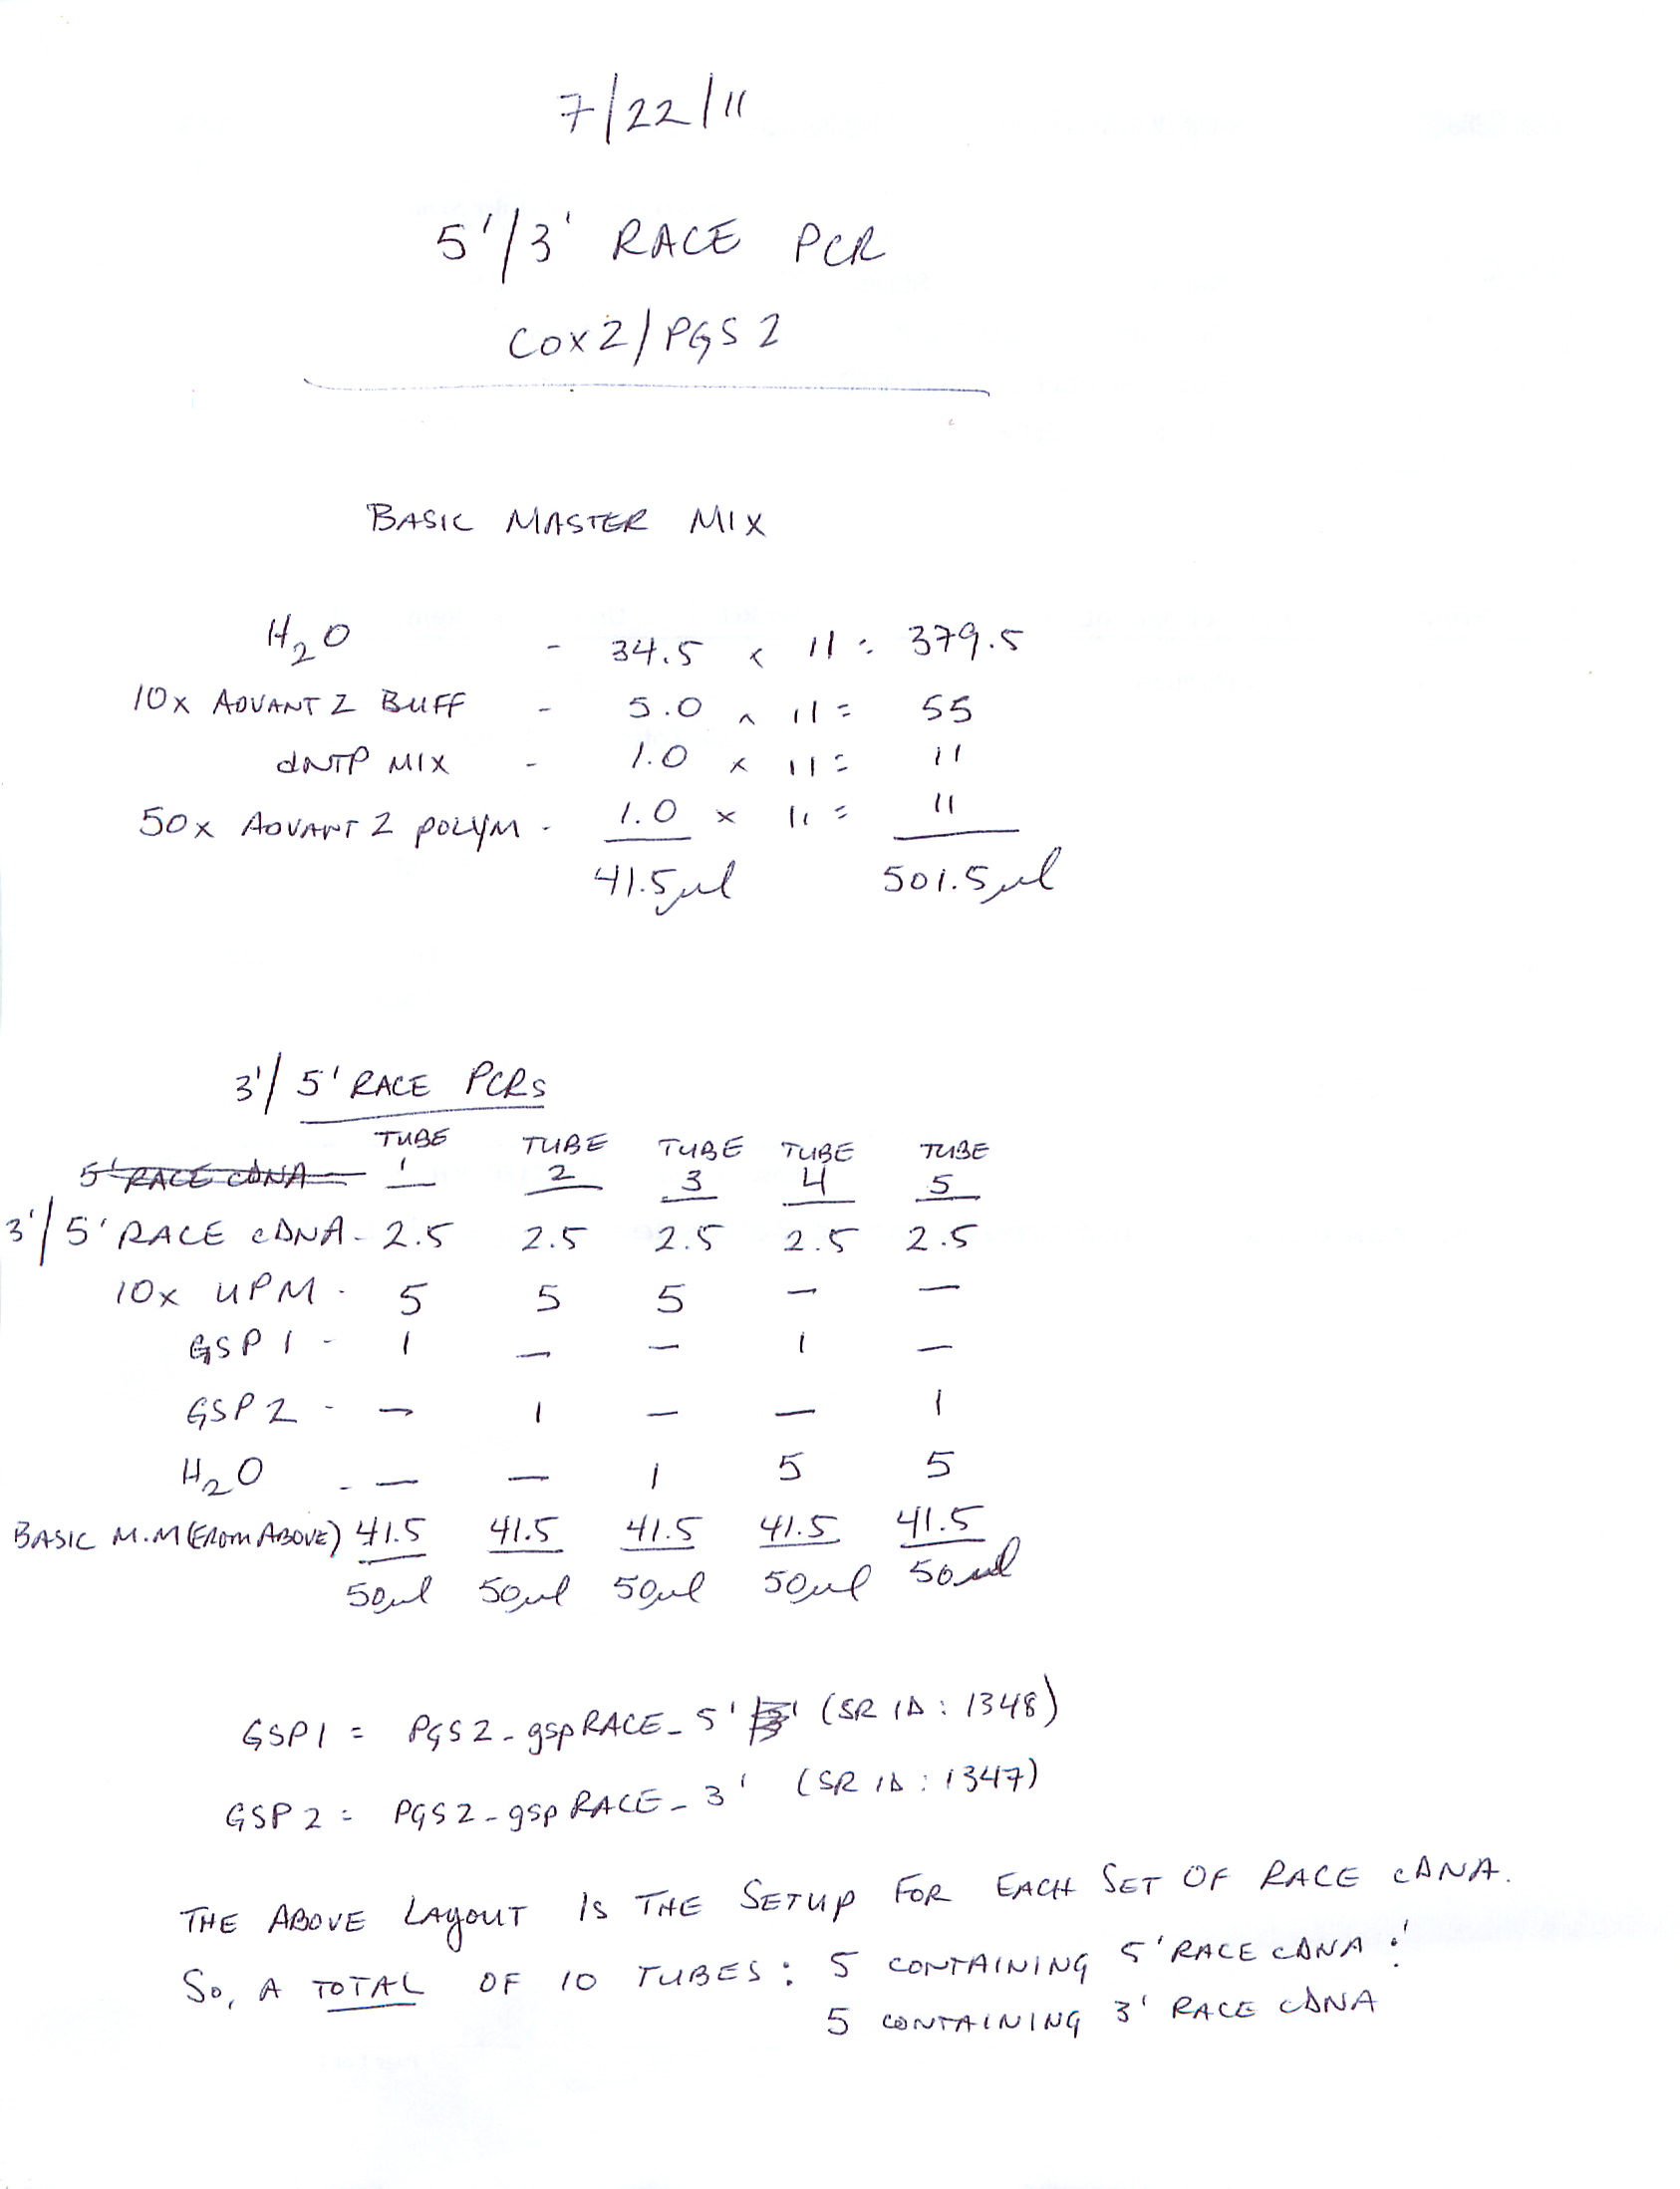 7/22/11
5'/3' RACE PCR
COX2/PGS2
BASIC MASTER MIX
H2O - 34.5 x 11 = 379.5
10x ADVANT 2 BUFF - 5.0 x 11 = 55
dNTP MIX - 1.0 x 11 = 11
50x ADVANT 2 POLYM - 1.0 x 11 = 11
41.5µl 501.5µl
3'/5' RACE PCRs
TUBE TUBE TUBE TUBE TUBE
5' RACE cDNA 1 2 3 4 5
3'/5' RACE cDNA - 2.5 2.5 2.5 2.5 2.5
10x UPM - 5 5 5 — —
GSP1 - 1 — — 1 —
GSP2 - — 1 — — 1
H2O - — — 1 5 5
BASIC M.M (FROM ABOVE) 41.5 41.5 41.5 41.5 41.5
50µl 50µl 50µl 50µl 50µl
GSP1 = PGS2-gspRACE_5' (SR ID: 1348)
GSP2 = PGS2-gspRACE_3' (SR ID: 1347)
THE ABOVE LAYOUT IS THE SETUP FOR EACH SET OF RACE cDNA.
SO, A TOTAL OF 10 TUBES: 5 CONTAINING 5' RACE cDNA &
5 CONTAINING 3' RACE cDNA